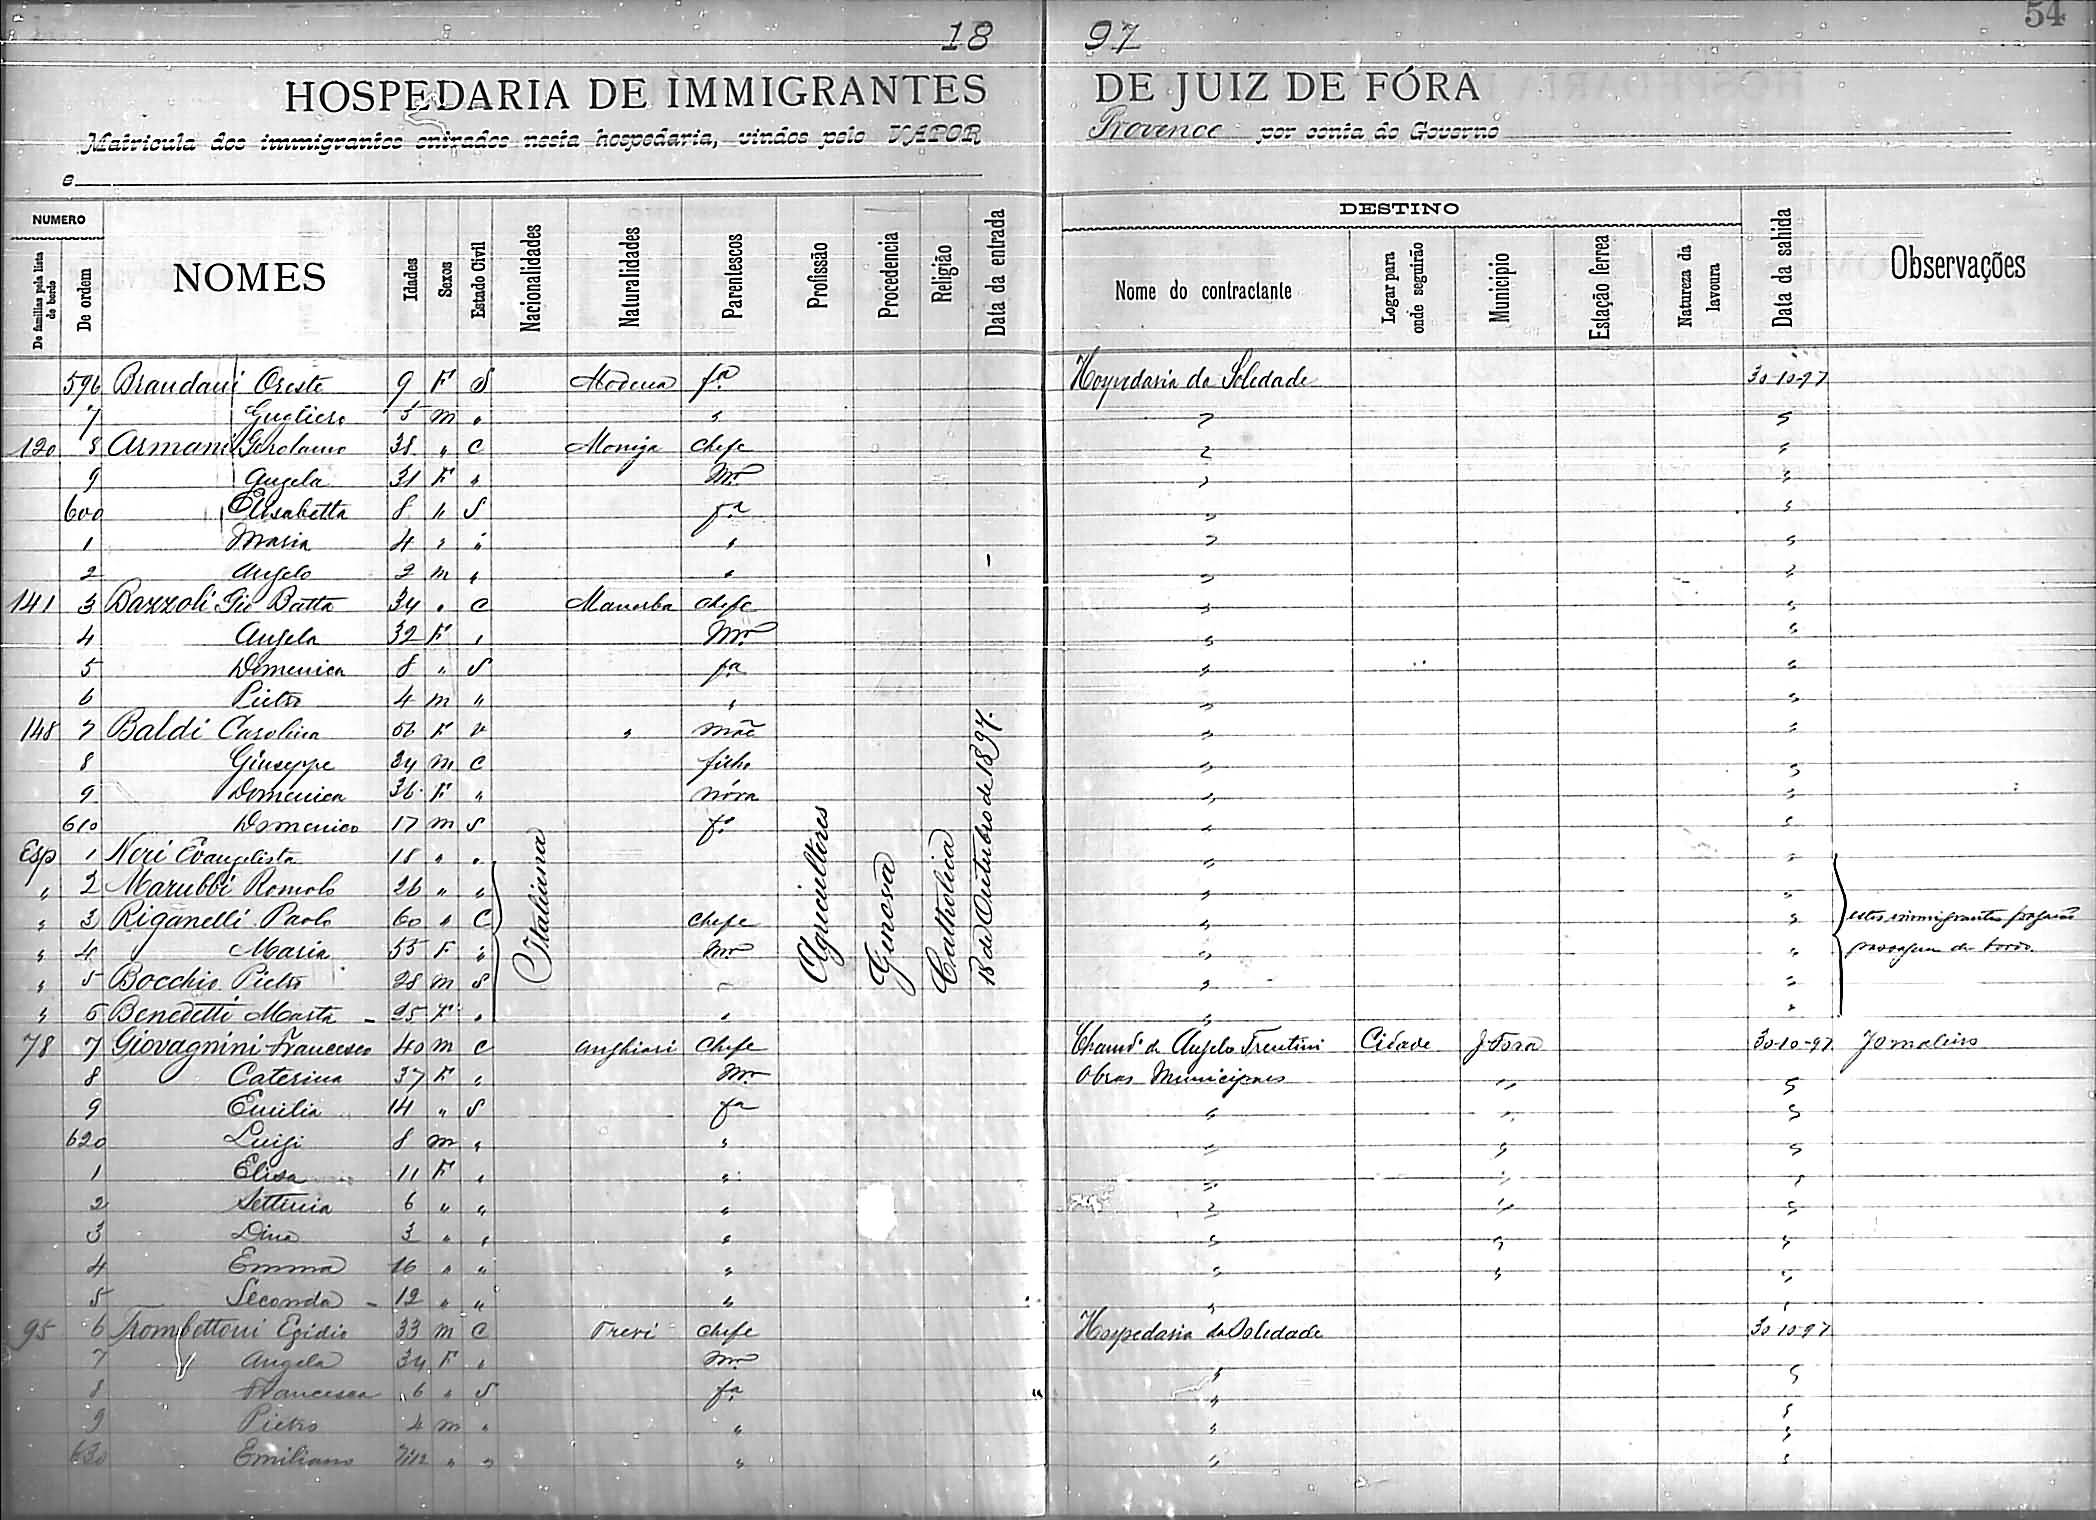 54
18 97
HOSPEDARIA DE IMMIGRANTES DE JUIZ DE FÓRA
Matricula dos immigrantes entrados nesta hospedaria, vindos pelo VAPOR Provence por conta do Governo
e
NUMERO
DESTINO
De familias pela lista de bordo
De ordem
NOMES
Idades
Sexos
Estado Civil
Nacionalidades
Naturalidades
Parentescos
Profissão
Procedencia
Religião
Data da entrada
Nome do contractante
Logar para onde seguirão
Municipio
Estação ferrea
Natureza da lavoura
Data da sahida
Observações
596 Brandani Oreste 9 F S Modena fa Hospedaria da Soledade 30-10-97
7 Gugliero 5 m " " " "
120 8 Armani Girolamo 38 " C Moniga Chefe " "
9 Angela 31 F " Mr " "
600 Elisabetta 8 " S fa " "
1 Maria 4 " " " " "
2 Angelo 2 m " " " "
141 3 Bazzoli Gio Batta 34 " C Manerba Chefe " "
4 Angela 32 F " Mr " "
5 Domenica 8 " S fa " "
6 Pietro 4 m " " " "
148 7 Baldi Carolina 56 F v " mãe " "
8 Giuseppe 34 m C filho " "
9 Domenica 36 F " nóra " "
610 Domenico 17 m S fo " "
Esp 1 Neri Evangelista 18 " " " "
" 2 Marubbi Romolo 26 " " " "
" 3 Riganelli Paolo 60 " C Chefe " " estes immigrantes pagarão
" 4 Maria 55 F " Mr " " passagem de bordo.
" 5 Bocchio Pietro 28 m S " "
" 6 Benedetti Marta 25 F " " " "
Italiana
Agricultores
Genova
Catholica
18 de Outubro de 1897.
78 7 Giovagnini Francesco 40 m C Anghiari Chefe Chamdo de Angelo Trentini Cidade J. Fora 30-10-97 Jornaleiro
8 Caterina 37 F " Mr Obras Municipaes " "
9 Emilia 14 " S fa " " "
620 Luigi 8 m " " " " "
1 Elisa 11 F " " " " "
2 Settimia 6 " " " " " "
3 Dina 3 " " " " " "
4 Emma 16 " " " " " "
5 Seconda 12 " " " " "
95 6 Trombettoni Egidio 33 m C Trevi Chefe Hospedaria da Soledade 30-10-97
7 Angela 34 F " Mr " "
8 Francesca 6 " S fa " "
9 Pietro 4 m " " " "
630 Emiliano 7/12 " " " " "